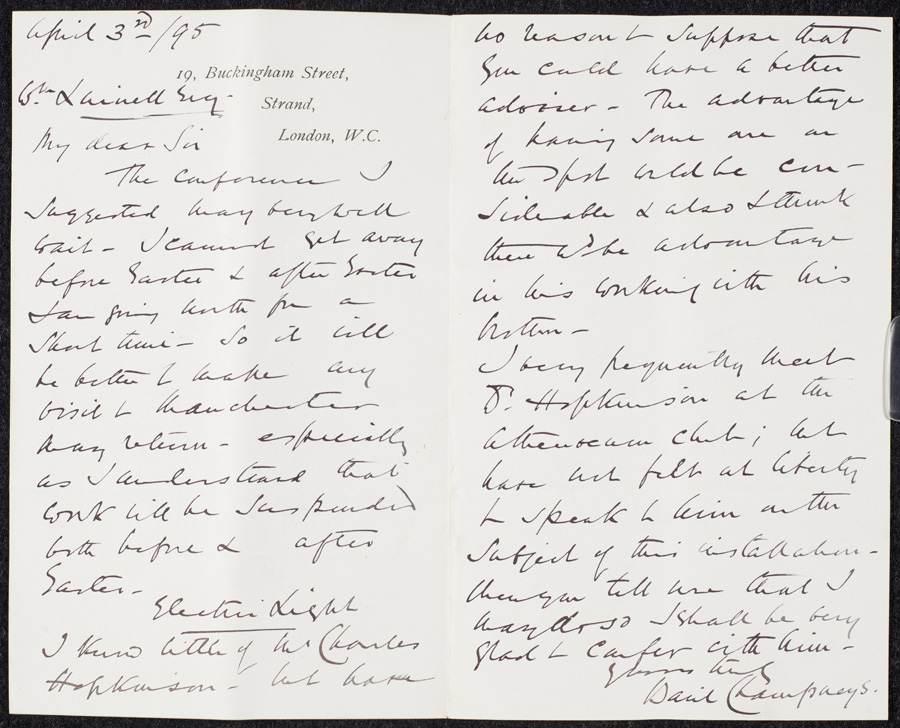 April 3rd/95
19, Buckingham Street,
Strand,
London, W.C.
Wm Linnell Esq.
My dear Sir
The conference I
suggested may very well
wait - I cannot get away
before Easter & after Easter
I am going north for a
short time - So it will
be better to make any
visit to Manchester
my return - especially
as I understand that
work will be suspended
both before & after
Easter -
Electric Light
I know little of Mr Charles
Hopkinson - but have
no reason to suppose that
you could have a better
adviser - The advantage
of having some one on
the spot wld be con-
siderable & also I think
there wd be advantage
in his working with his
brother -
I very frequently meet
Dr. Hopkinson at the
Athenaeum club; but
have not felt at liberty
to speak to him on the
subject of this installation -
when you tell me that I
may do so I shall be very
glad to confer with him -
Yours truly
Basil Champneys.